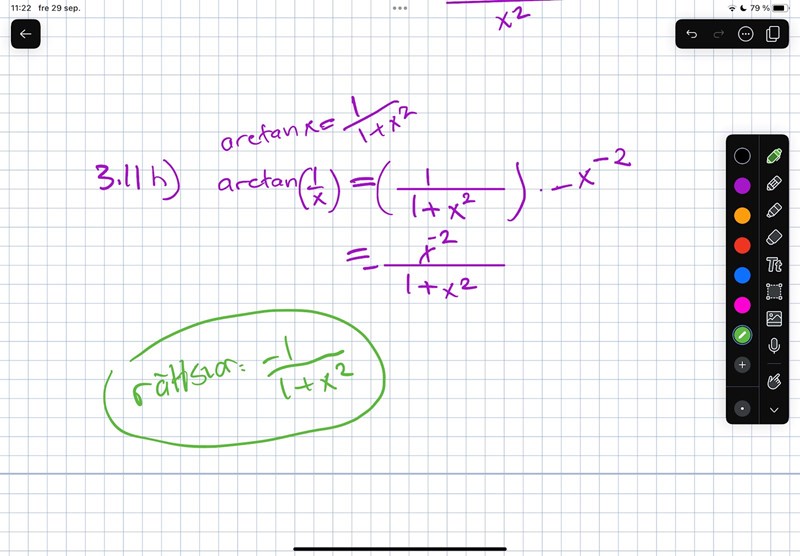 11:22 fre 29 sep.
79 %
x²
arctan x = 1/(1+x²)
3.11 h) arctan(1/x) = (1/(1+x²)) · -x⁻²
= - x⁻²/(1+x²)
Tt
rättsvar: -1/(1+x²)